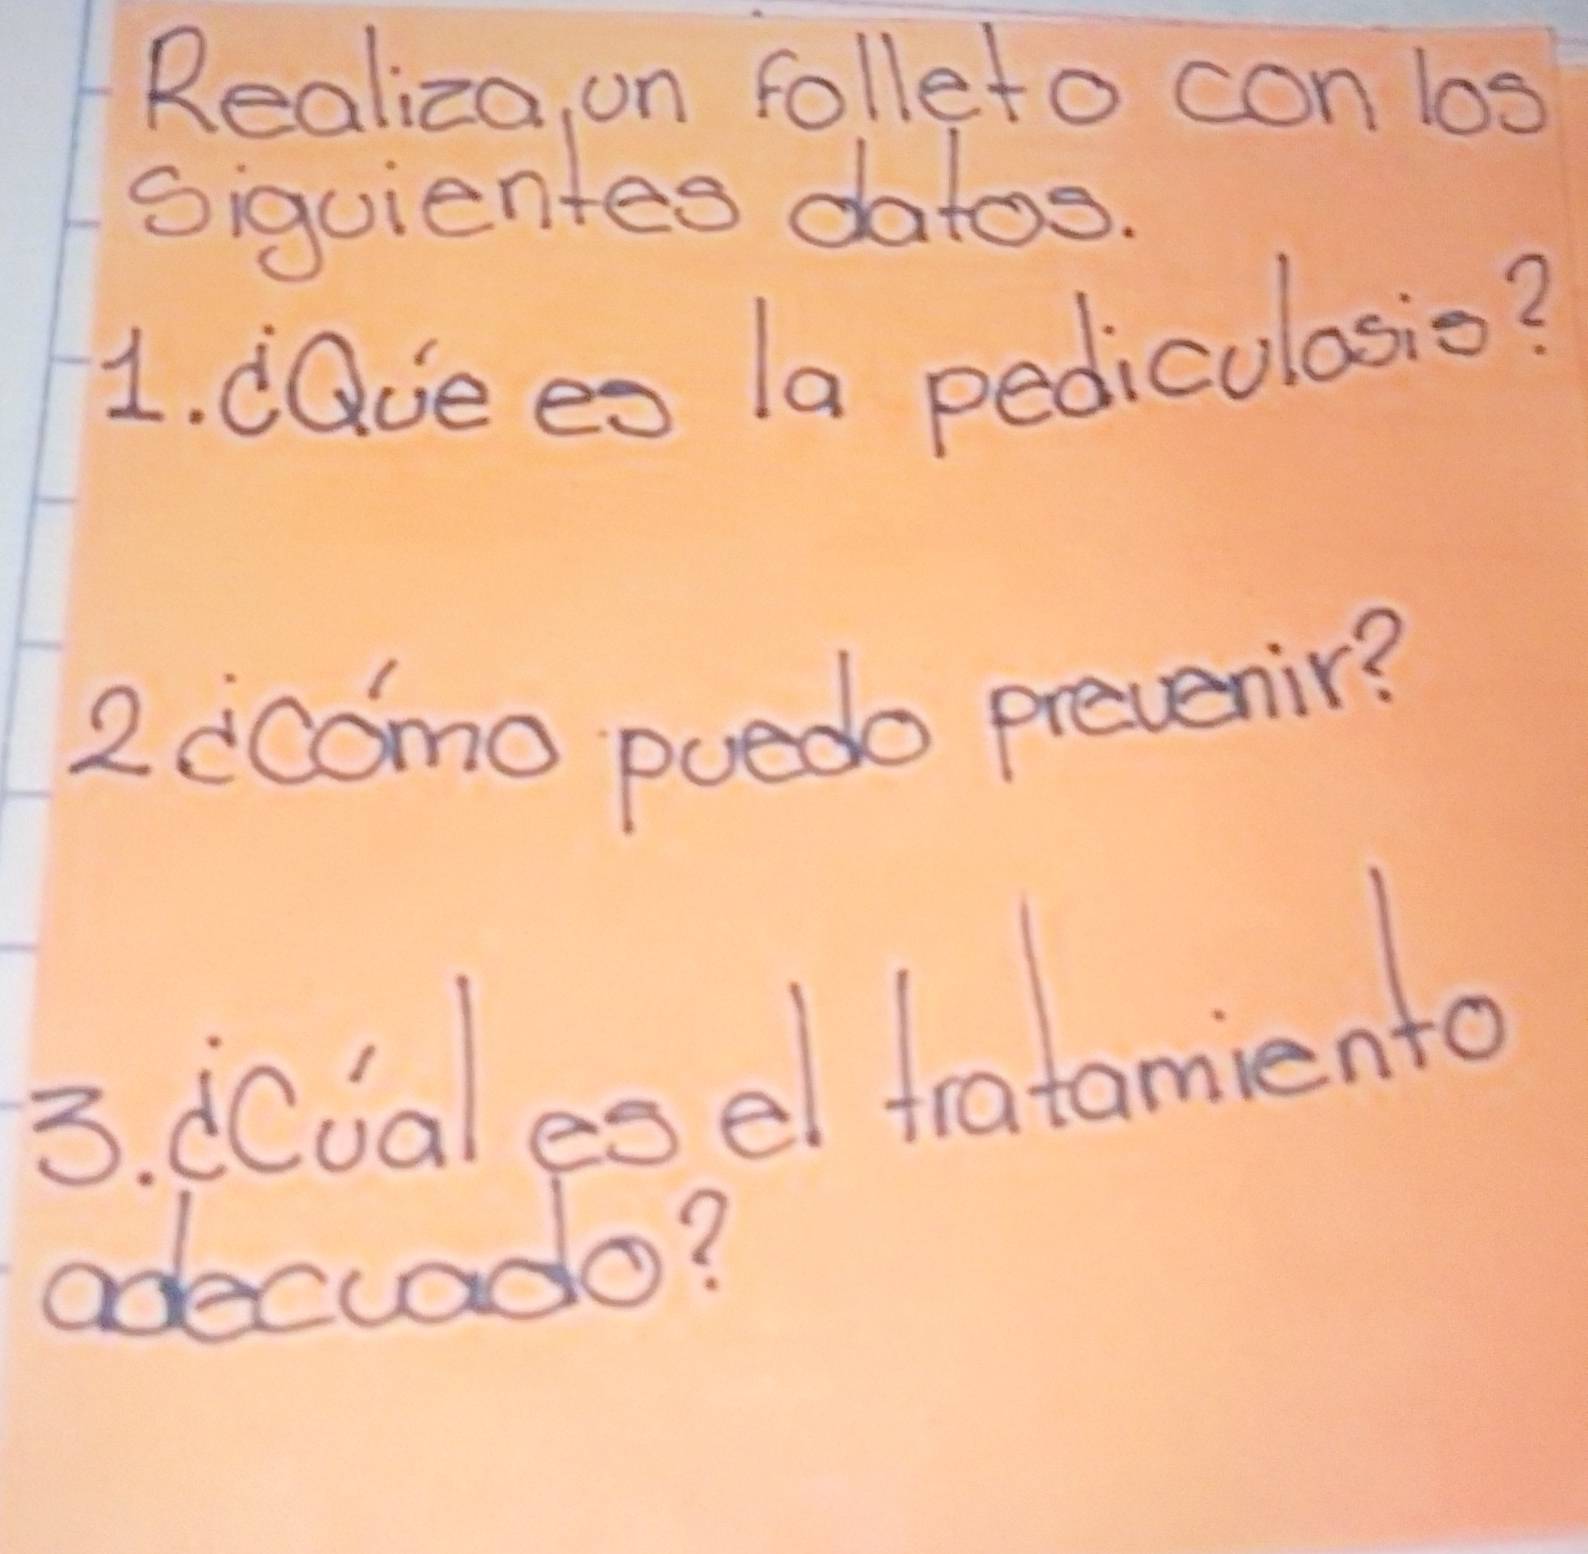 Realiza, un folleto con los
siguientes datos.
1. ¿Qúe es la pediculosis?
2 ¿Cómo puedo prevenir?
3. ¿Cúal es el tratamiento
adecuado?